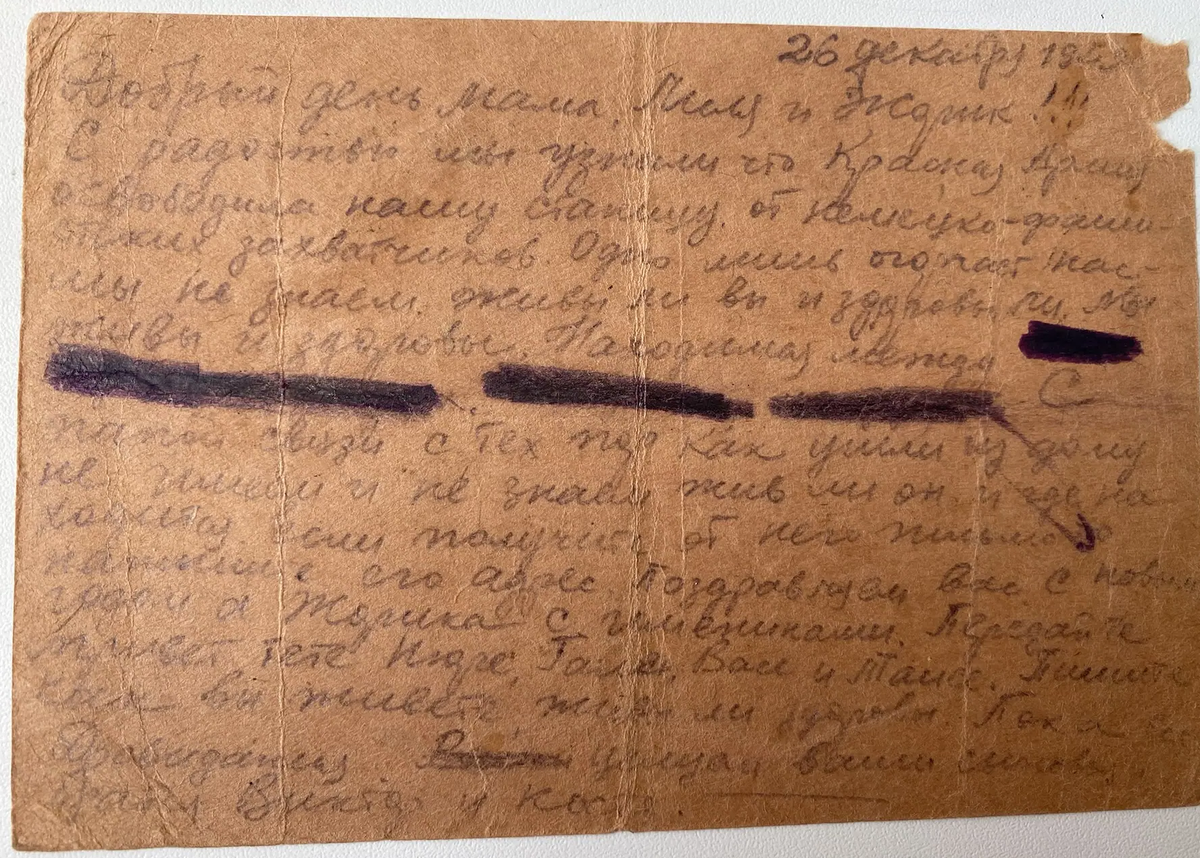 26 декабря 194
Добрый день мама, Миля и Ждрик!!!
С радостью мы узнали что Красная Армия
освободила нашу станицу от немецко-фашис-
тких захватчиков. Одно лишь огорчает нас-
мы не знаем живы ли вы и здоровы ли. Мы
живы и здоровы. Находимся между
С
папой связи с тех пор как ушли из дому
не имеем и не знаем жив ли он и где на-
ходится если получите от него письмо
напишите его адрес. Поздравляем вас с новым
годом а Ждрика с именинами. Передайте
привет тете Нюре, Гале, Вале и Таисе. Пишите
как вы живете живы ли здоровы. Пока
Досвидания целуем ваши сыновья
Виктор и